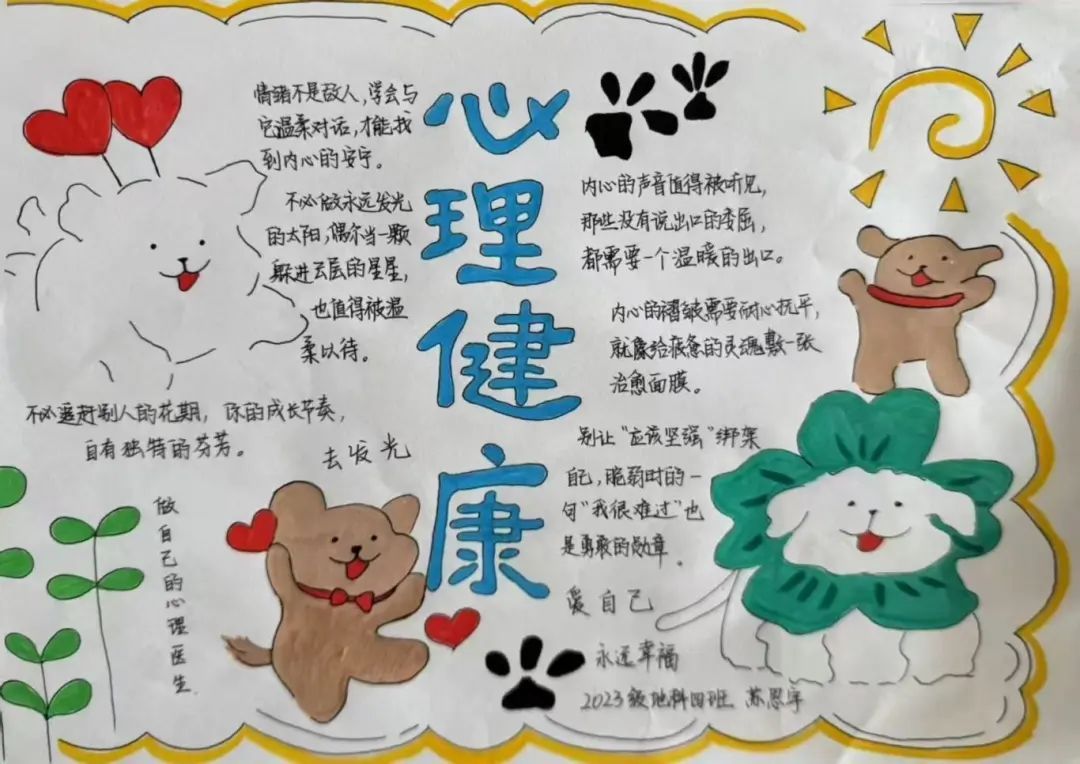 心理健康
情绪不是敌人，学会与
它温柔对话，才能找
到内心的安宁。
不必做永远发光
的太阳，偶尔当一颗
躲进云层的星星，
也值得被温
柔以待。
不必追赶别人的花期，你的成长节奏，
自有独特的芬芳。
去发光
做自己的心理医生
内心的声音值得被听见，
那些没有说出口的委屈，
都需要一个温暖的出口。
内心的褶皱需要耐心抚平，
就像给疲惫的灵魂敷一张
治愈面膜。
别让“应该坚强”绑架
自己，脆弱时的一
句“我很难过”也
是勇敢的勋章。
爱自己
永远幸福
2023级地科四班 苏思宇